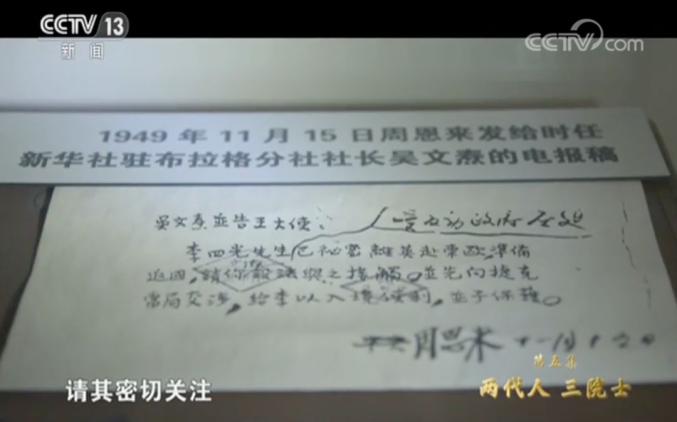 CCTV 13
新闻
CCTV.com
1949 年 11 月 15 日周恩来发给时任
新华社驻布拉格分社社长吴文焘的电报稿
吴文焘并告王大使：
李四光先生已秘密离英赴东欧，准备
返国，请你设法与之接触。并先向捷克
当局交涉，给李以入境便利，并予保护。
周恩来
请其密切关注
第五集
两代人 三院士